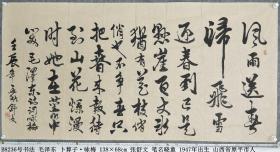 風雨送春
歸飛雪
迎春到已是
懸崖百丈冰
犹有花枝
俏也不争春只
把春来报待
到山花烂漫
时她在丛中
笑毛泽东词咏梅
壬辰年
B8236号书法 毛泽东 卜算子·咏梅 138×68cm 张舒文 笔名晓嘉 1947年出生 山西省原平市人